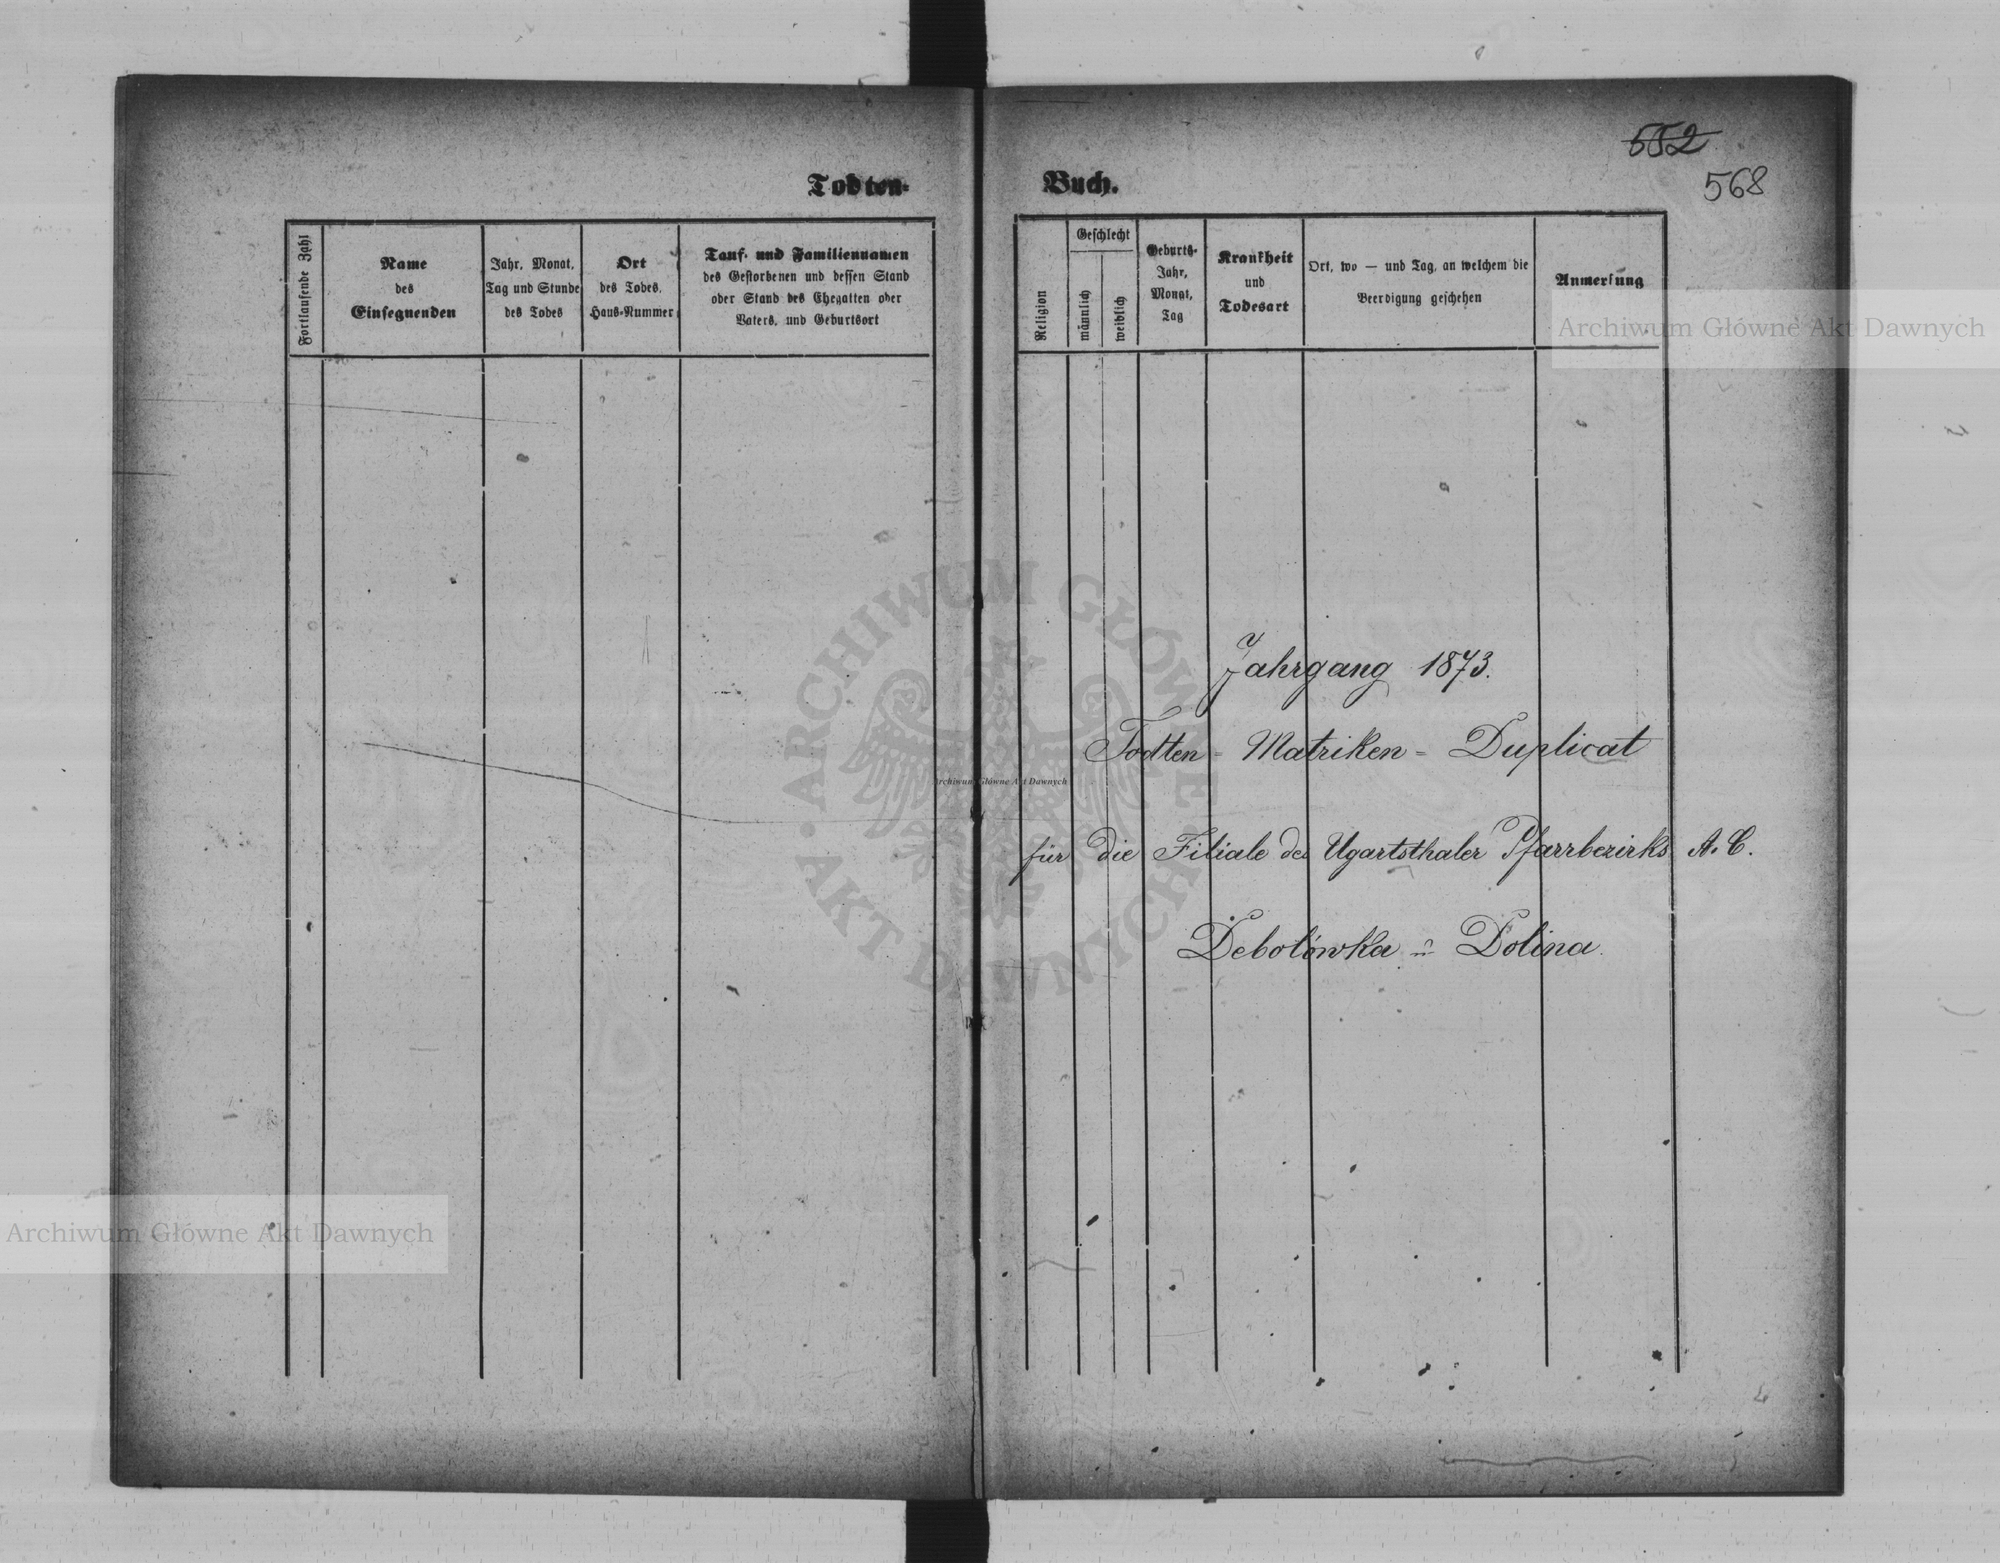 552
568
Todten-Buch.
Fortlaufende Zahl
Name
des
Einsegnenden
Jahr, Monat,
Tag und Stunde
des Todes
Ort
des Todes,
Haus-Nummer
Tauf- und Familiennamen
des Gestorbenen und dessen Stand
oder Stand des Ehegatten oder
Vaters, und Geburtsort
Religion
Geschlecht
männlich
weiblich
Geburts-
Jahr,
Monat,
Tag
Krankheit
und
Todesart
Ort, wo — und Tag, an welchem die
Beerdigung geschehen
Anmerkung
Archiwum Główne Akt Dawnych
Jahrgang 1873.
Todten - Matriken - Duplicat
Archiwum Główne Akt Dawnych
für die Filiale des Ugartsthaler Pfarrbezirks A. C.
Debolówka - Dolina.
ARCHIWUM GŁÓWNE • AKT DAWNYCH •
Archiwum Główne Akt Dawnych